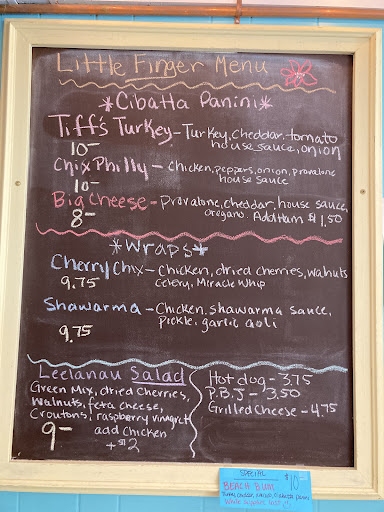 Little Finger Menu
*Cibatta Panini*
Tiff's Turkey - Turkey, cheddar, tomato
house sauce, onion
10-
Chix Philly - Chicken, peppers, onion, provalone
house sauce
10-
Big Cheese - Provalone, cheddar, house sauce,
oregano. Add Ham $1.50
8-
*Wraps*
Cherry Chix - Chicken, dried cherries, walnuts
Celery, Miracle Whip
9.75
Shawarma - Chicken, shawarma sauce,
pickle, garlic aoli
9.75
Leelanau Salad
Green Mix, dried cherries,
Walnuts, feta cheese,
Croutons, raspberry vinagrct
9-
add Chicken
+ $2
Hot dog - 3.75
P.B.J - 3.50
Grilled Cheese - 4.75
SPECIAL
$10-
BEACH BUM
While supplies last